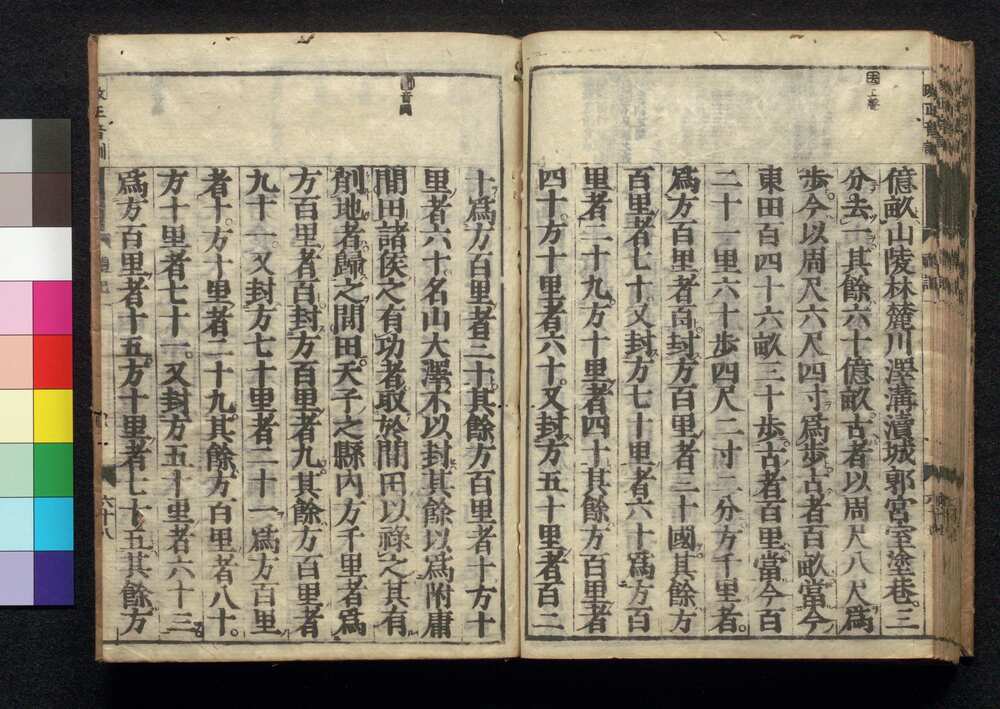 億畝山陵林麓川澤溝瀆城郭宮室塗巷三
分去一其餘六十億畝古者以周尺八尺爲
歩今以周尺六尺四寸爲歩古者百畝當今
東田百四十六畝三十歩古者百里當今百
二十一里六十歩四尺二寸二分方千里者
爲方百里者百封方百里者三十國其餘方
百里者七十又封方七十里者六十爲方百
里者二十九方十里者四十其餘方百里者
四十方十里者六十又封方五十里者百二
十爲方百里者三十其餘方百里者十方十
里者六十名山大澤不以封其餘以爲附庸
間田諸侯之有功者取於間田以祿之其有
削地者歸之間田天子之縣内方千里者爲
方百里者百封方百里者九其餘方百里者
九十一又封方七十里者二十一爲方百里
者十方十里者二十九其餘方百里者八十
方十里者七十一又封方五十里者六十三
爲方百里者十五方十里者七十五其餘方
六十八